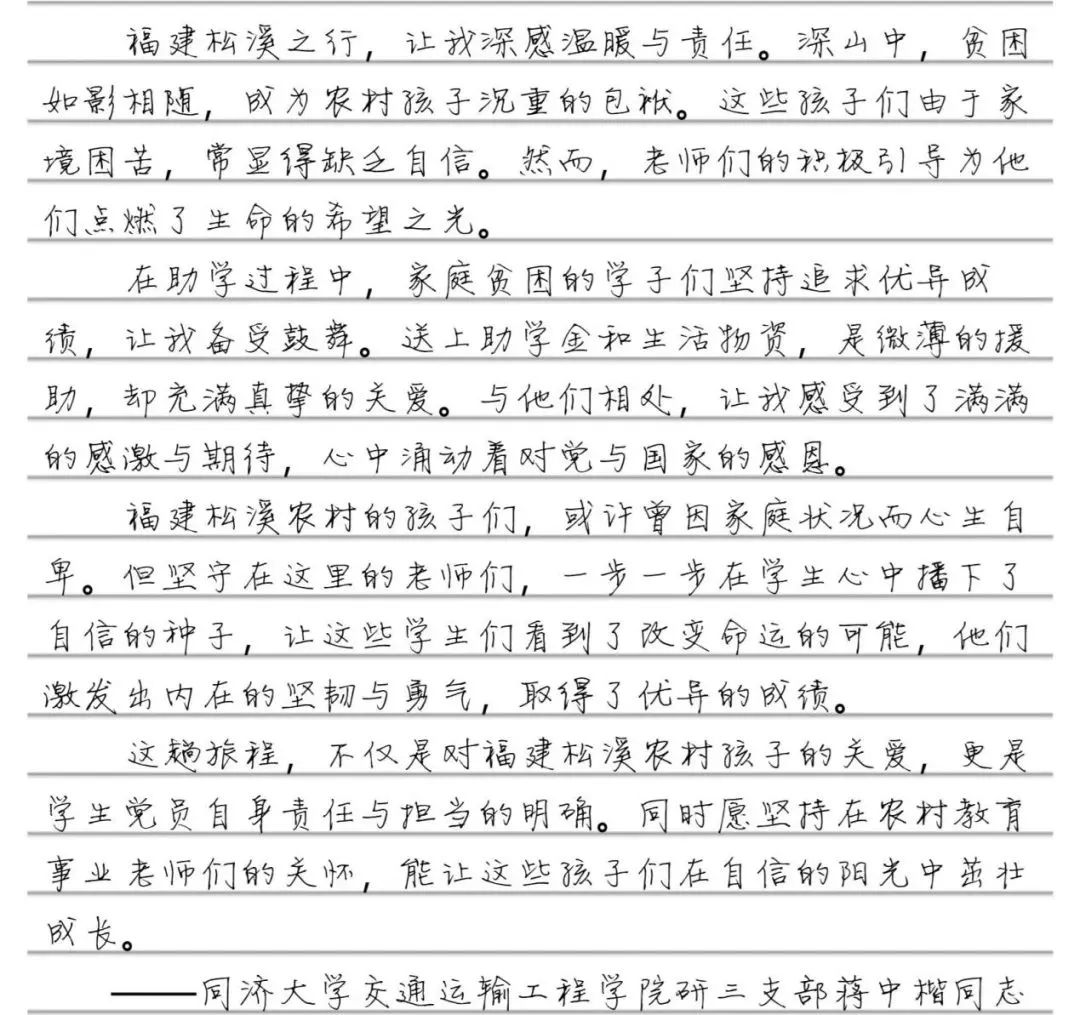 福建松溪之行，让我深感温暖与责任。深山中，贫困
如影相随，成为农村孩子沉重的包袱。这些孩子们由于家
境困苦，常显得缺乏自信。然而，老师们的积极引导为他
们点燃了生命的希望之光。
在助学过程中，家庭贫困的学子们坚持追求优异成
绩，让我备受鼓舞。送上助学金和生活物资，是微薄的援
助，却充满真挚的关爱。与他们相处，让我感受到了满满
的感激与期待，心中涌动着对党与国家的感恩。
福建松溪农村的孩子们，或许曾因家庭状况而心生自
卑。但坚守在这里的老师们，一步一步在学生心中播下了
自信的种子，让这些学生们看到了改变命运的可能，他们
激发出内在的坚韧与勇气，取得了优异的成绩。
这趟旅程，不仅是对福建松溪农村孩子的关爱，更是
学生党员自身责任与担当的明确。同时愿坚持在农村教育
事业老师们的关怀，能让这些孩子们在自信的阳光中茁壮
成长。
——同济大学交通运输工程学院研三支部蒋中楷同志